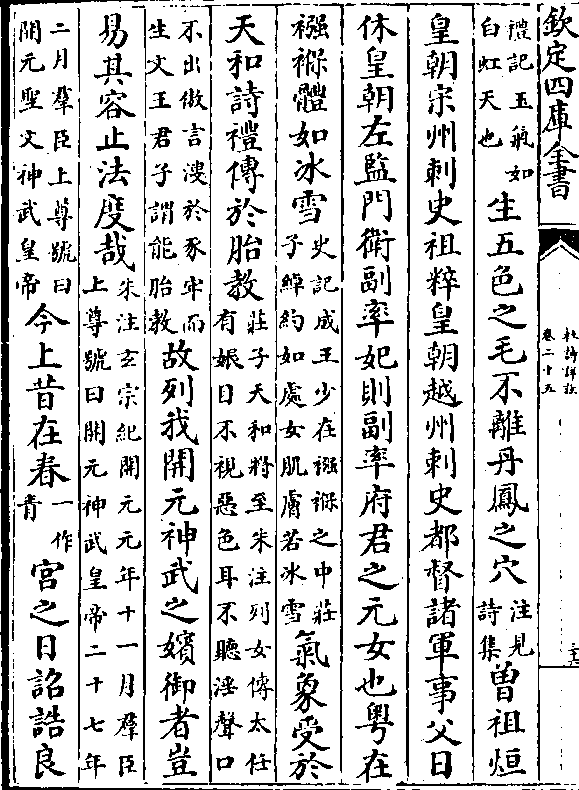 欽定四庫全書
杜詩詳註
卷二十五
禮記玉氣如
白虹天也
生五色之毛不離丹鳳之穴
注見
詩集
曽祖烜
皇朝宗州刺史祖粹皇朝越州刺史都督諸軍事父曰
休皇朝左監門衛副率妃則副率府君之元女也粤在
襁褓體如冰雪
史記成王少在襁褓之中莊
子綽約如處女肌膚若冰雪
氣象受於
天和詩禮傳於胎教
莊子天和將至朱注列女傳太任
有娠目不視惡色耳不聽淫聲口
不出傲言溲於豕牢而
生文王君子謂能胎教
故列我開元神武之嬪御者豈
易其容止法度哉
朱注玄宗紀開元元年十一月羣臣
上尊號曰開元神武皇帝二十七年
二月羣臣上尊號曰
開元聖文神武皇帝
今上昔在春
一作
青
宮之日詔誥良